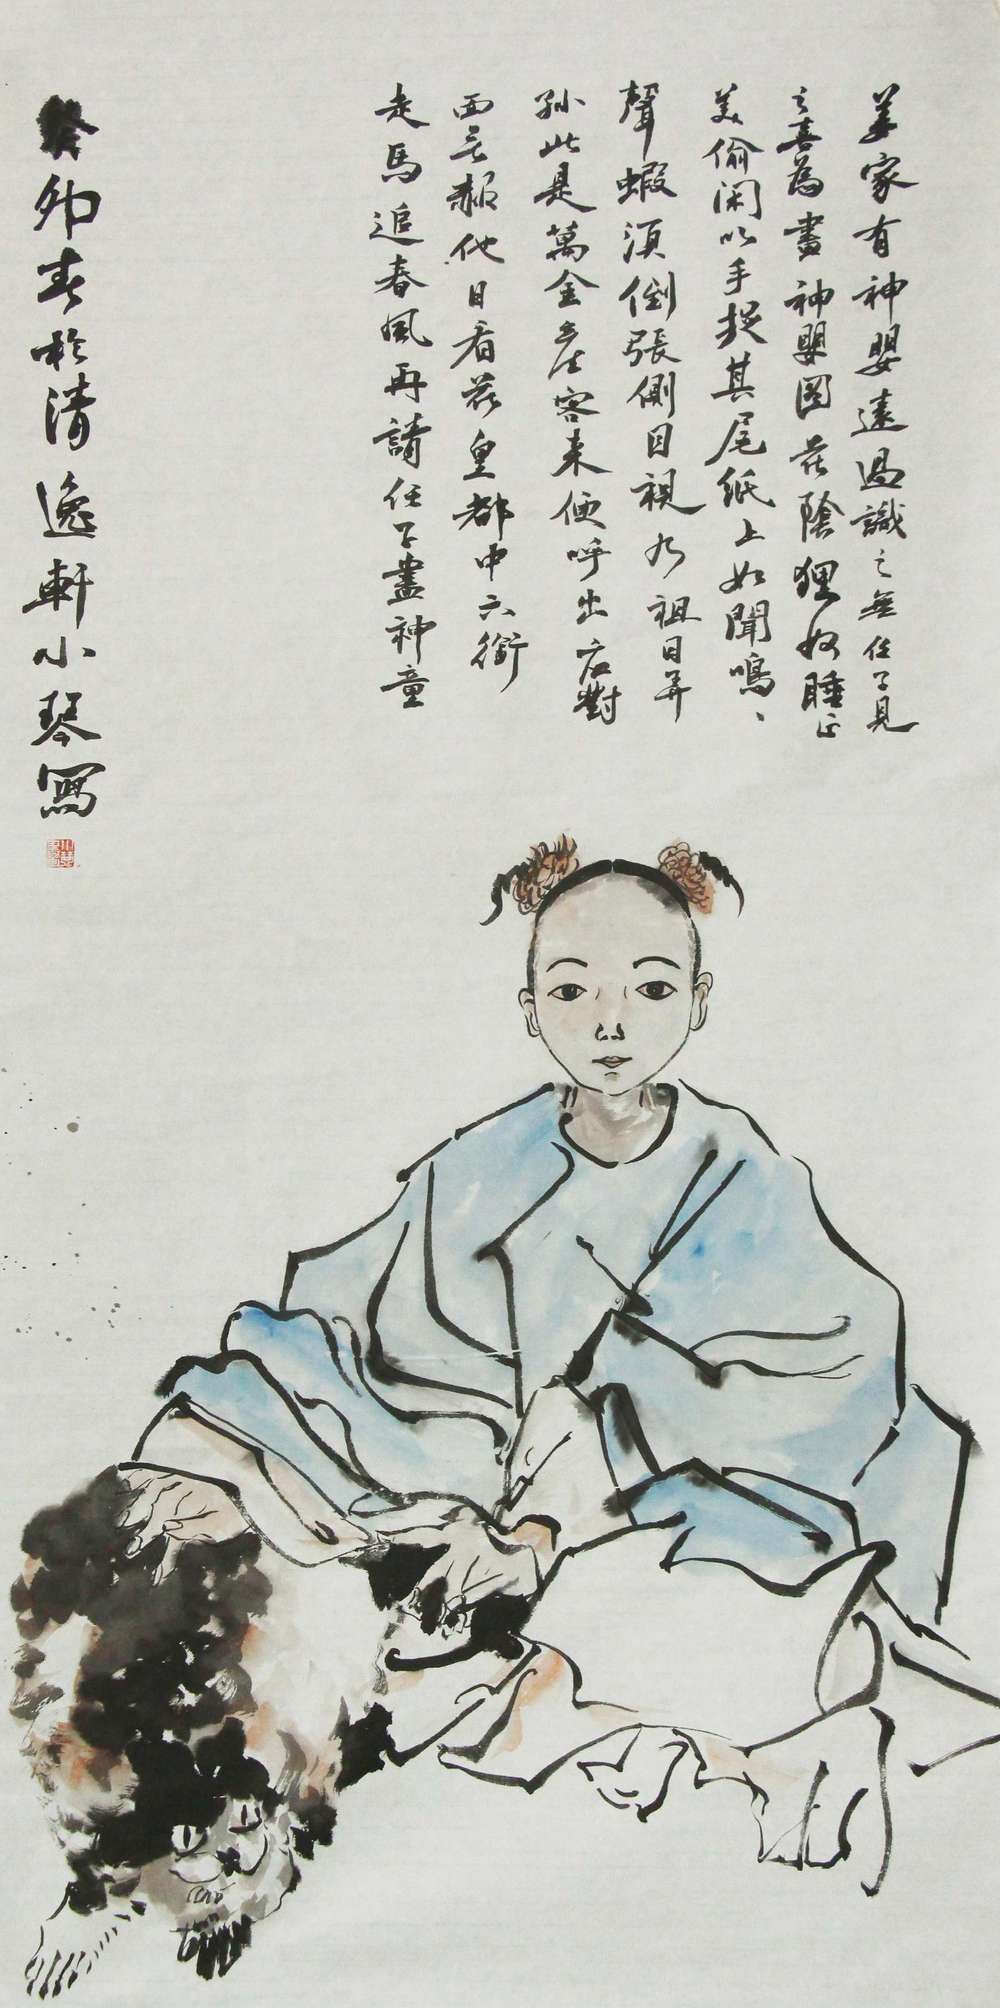 姜家有神嬰遠過識之無任子見
之喜為畫神嬰圖花陰狸奴睡正
美偷閑以手捉其尾紙上如聞鳴、
聲蝦須倒張側目視乃祖日弄
孫此是萬金產客来便呼出應對
面無赧他日看花皇都中六街
走馬追春風再請任子畫神童
癸卯春於清逸軒小琴寫